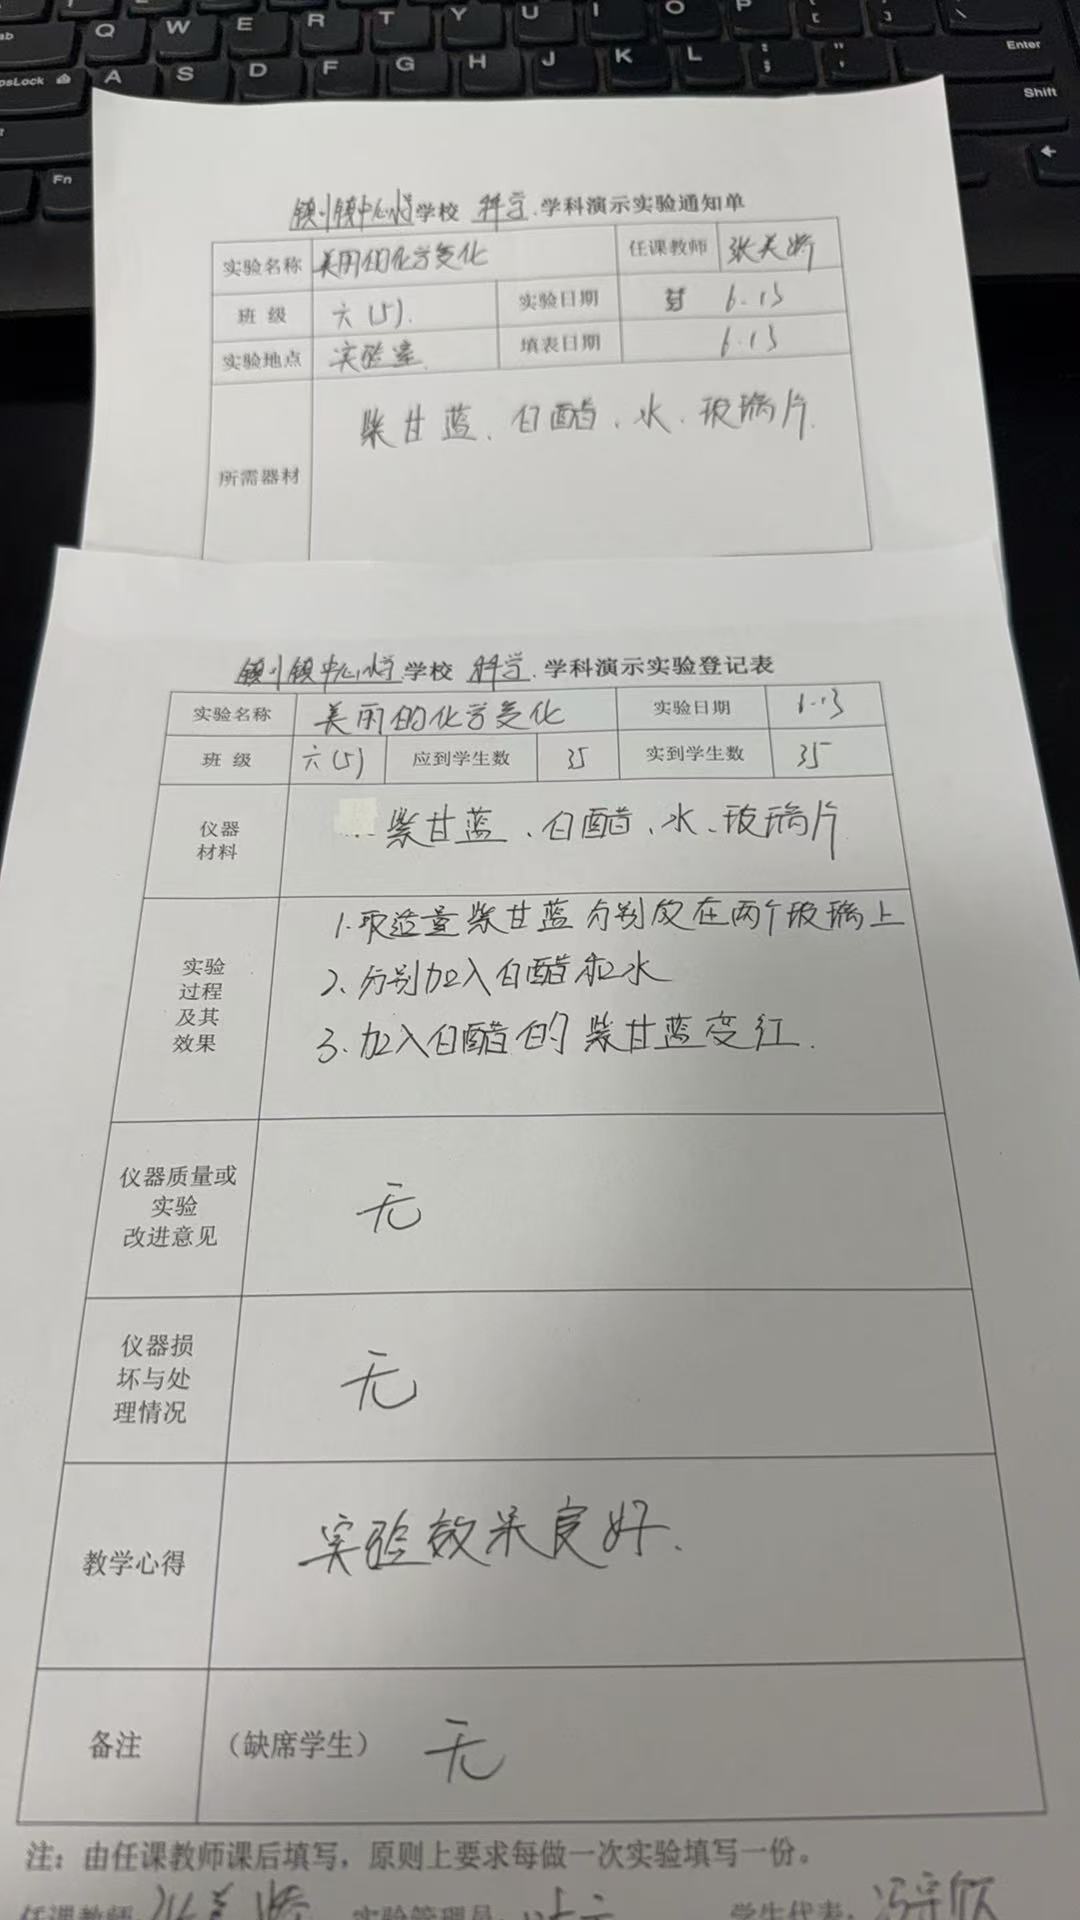 Q W E R T Y U I O P
CapsLock A S D F G H J K L Enter
Shift
Fn
镇川镇中心小学学校 科学 学科演示实验通知单
实验名称 美丽的化学变化 任课教师
班 级 六(5). 实验日期 6.13
实验地点 实验室 填表日期 6.13
所需器材 紫甘蓝、白醋、水、玻璃片.
镇川镇中心小学学校 科学 学科演示实验登记表
实验名称 美丽的化学变化 实验日期 6.13
班 级 六(5) 应到学生数 35 实到学生数 35
仪器
材料
紫甘蓝、白醋、水、玻璃片
实验
过程
及其
效果
1.取适量紫甘蓝分别放在两个玻璃上
2、分别加入白醋和水
3.加入白醋的紫甘蓝变红.
仪器质量或
实验
改进意见
无
仪器损
坏与处
理情况
无
教学心得 实验效果良好.
备注 (缺席学生) 无
注：由任课教师课后填写，原则上要求每做一次实验填写一份。
任课教师 实验管理员: 学生代表: